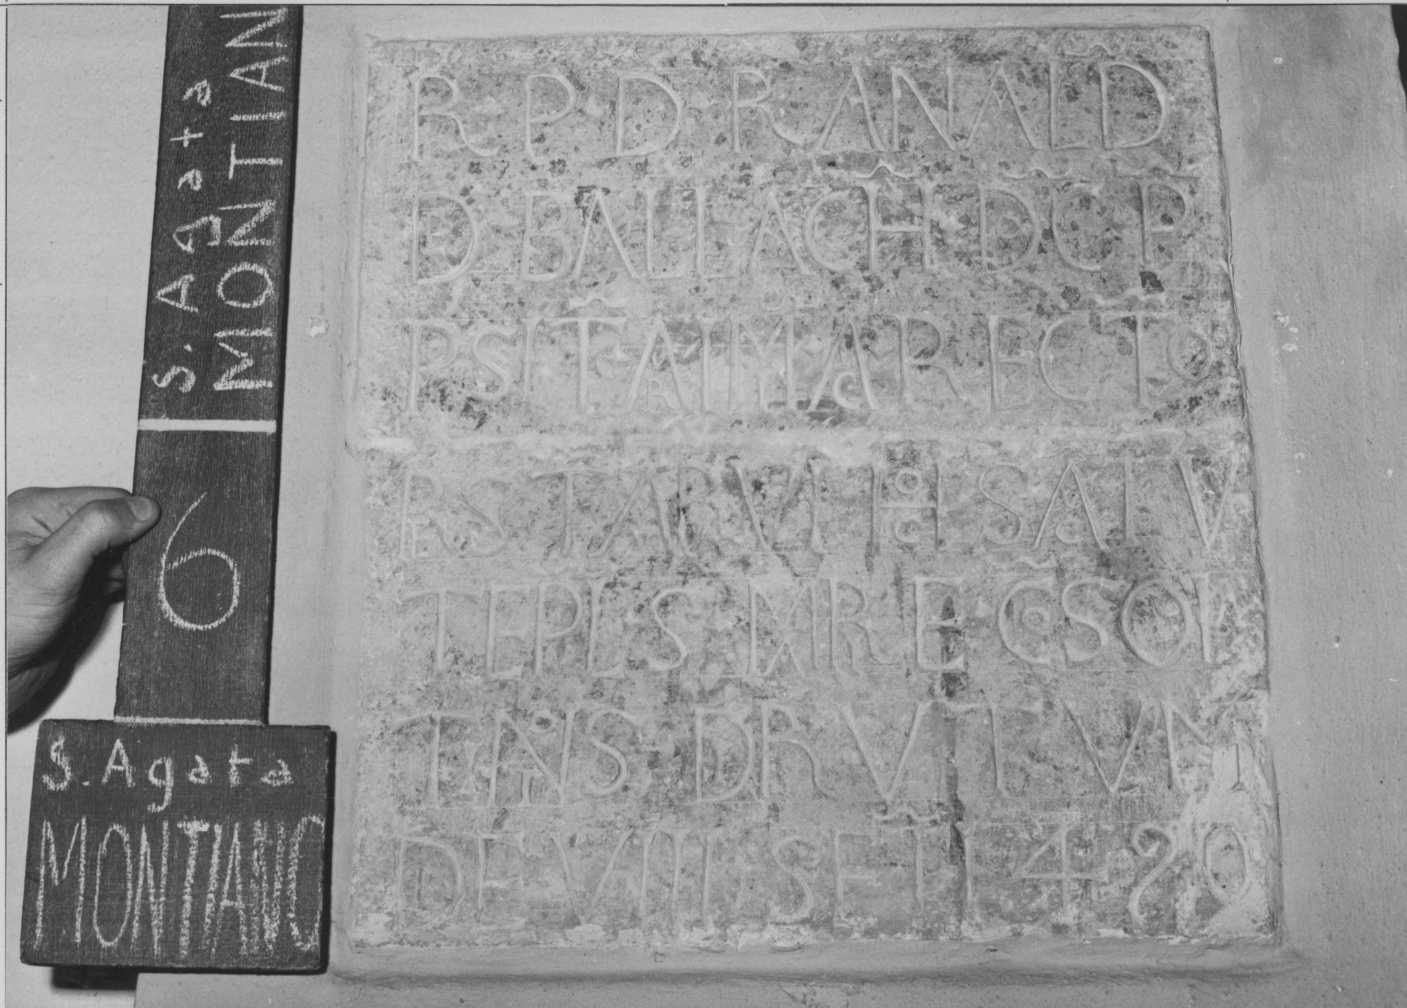 S. Agata
MONTIAN
6
S. Agata
MONTIANO
R P D RANALD
D BALLACH DCP
PSITAIMARECTo
RSTARVI HSATV
TEPLSMREGSOF
TNS DRVIVM
DE VIII SET 1480